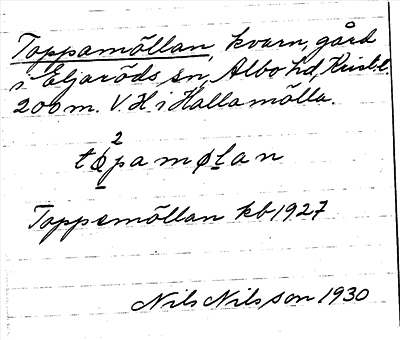 Toppamöllan, kvarn, gård
i Eljaröds sn, Albo hd, Krist.l.
200 m. V.H. i Hallamölla.
2
tǿpamøłan
Toppemöllan kb 1927
Nils Nilsson 1930